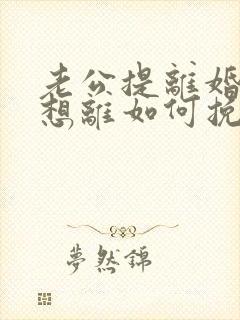 老公提離婚
想離如何挽
夢然錦